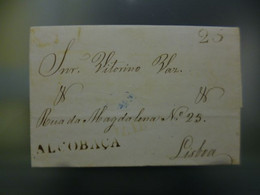 25
Snr. Vitorino Vaz
Rua da Magdalena Nº 25.
ALCOBAÇA
Lisboa